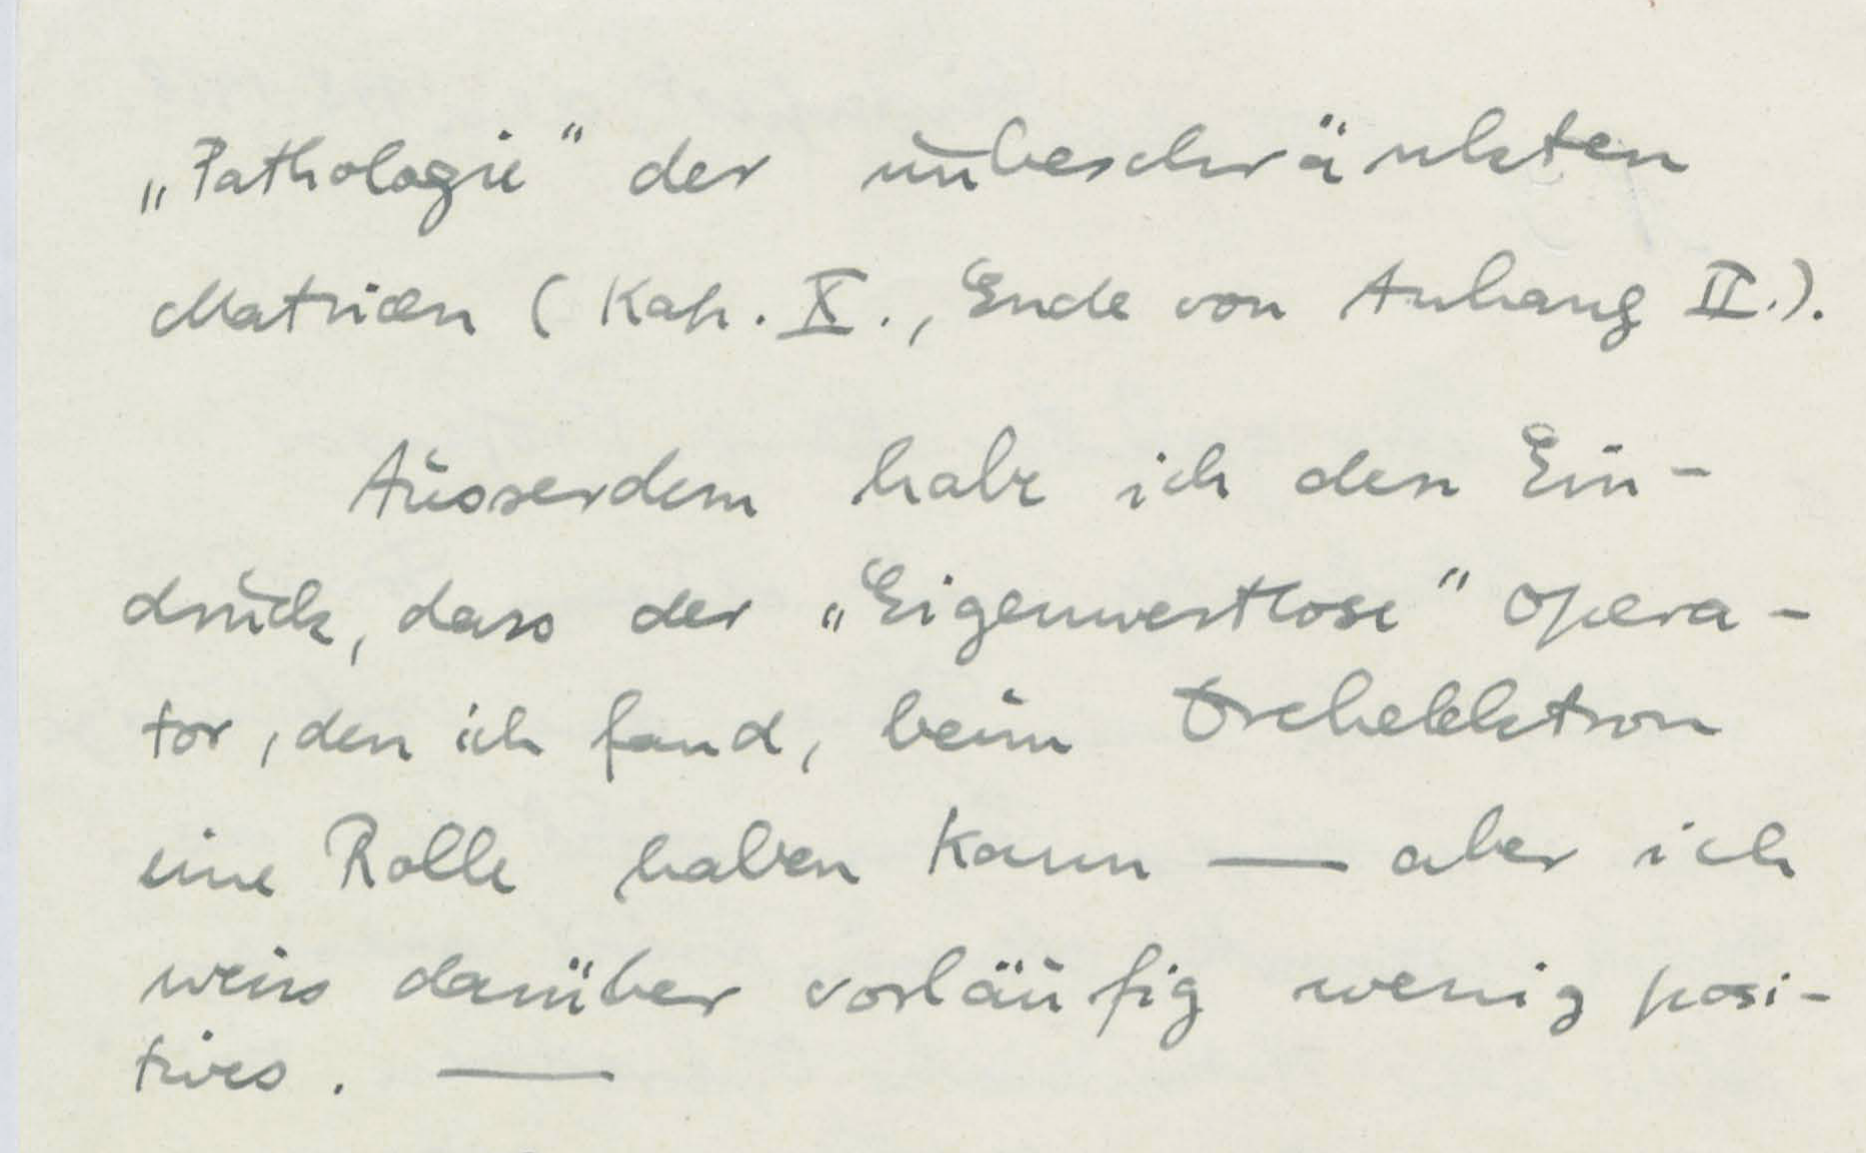 „Pathologie“ der unbeschränkten
Matrizen (Kap. X., Ende von Anhang II.).
Ausserdem habe ich den Ein-
druck, dass der „Eigenwertlose“ Opera-
tor, den ich fand, beim Drehelektron
eine Rolle haben kann — aber ich
weiss darüber vorläufig wenig posi-
tives. —